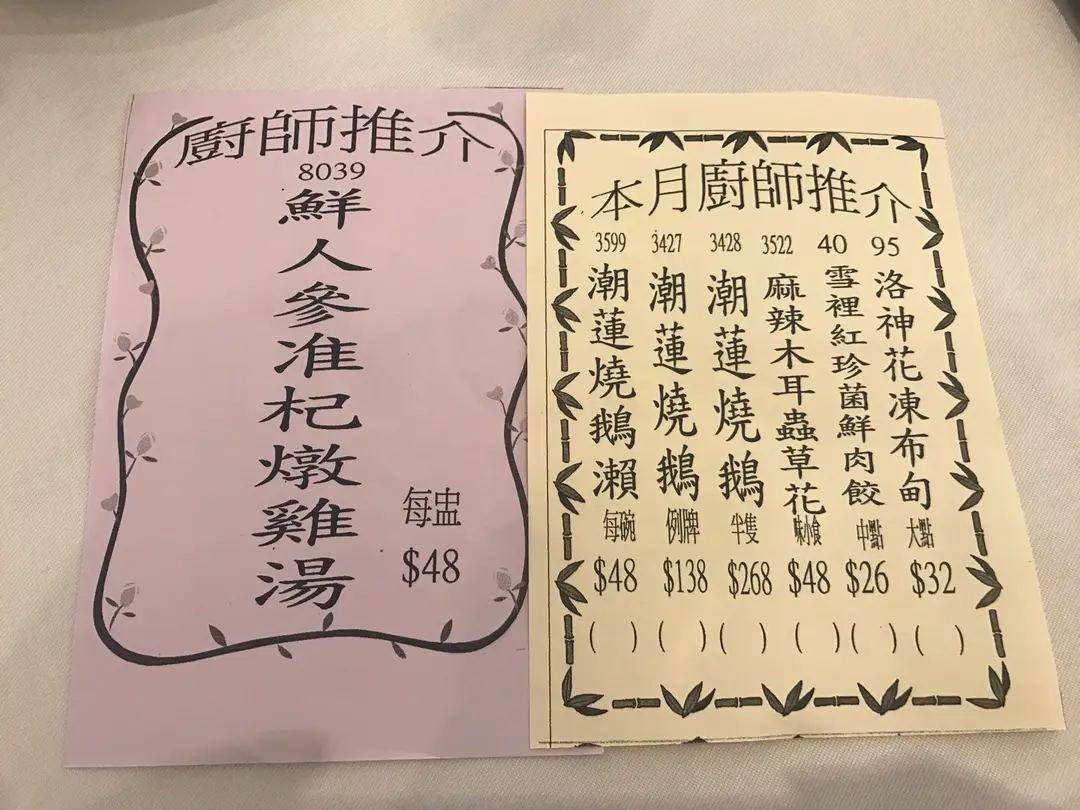 廚師推介
8039
鮮人參准杞燉雞湯
每盅
$48
本月廚師推介
95
洛神花凍布甸
大點
$32
( )
40
雪裡紅珍菌鮮肉餃
中點
$26
( )
3522
麻辣木耳蟲草花
味小食
$48
( )
3428
潮蓮燒鵝
半隻
$268
( )
3427
潮蓮燒鵝
例牌
$138
( )
3599
潮蓮燒鵝瀨
每碗
$48
( )